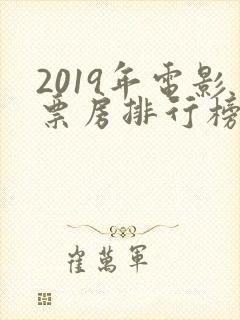 2019年電影
票房排行榜
崔萬軍